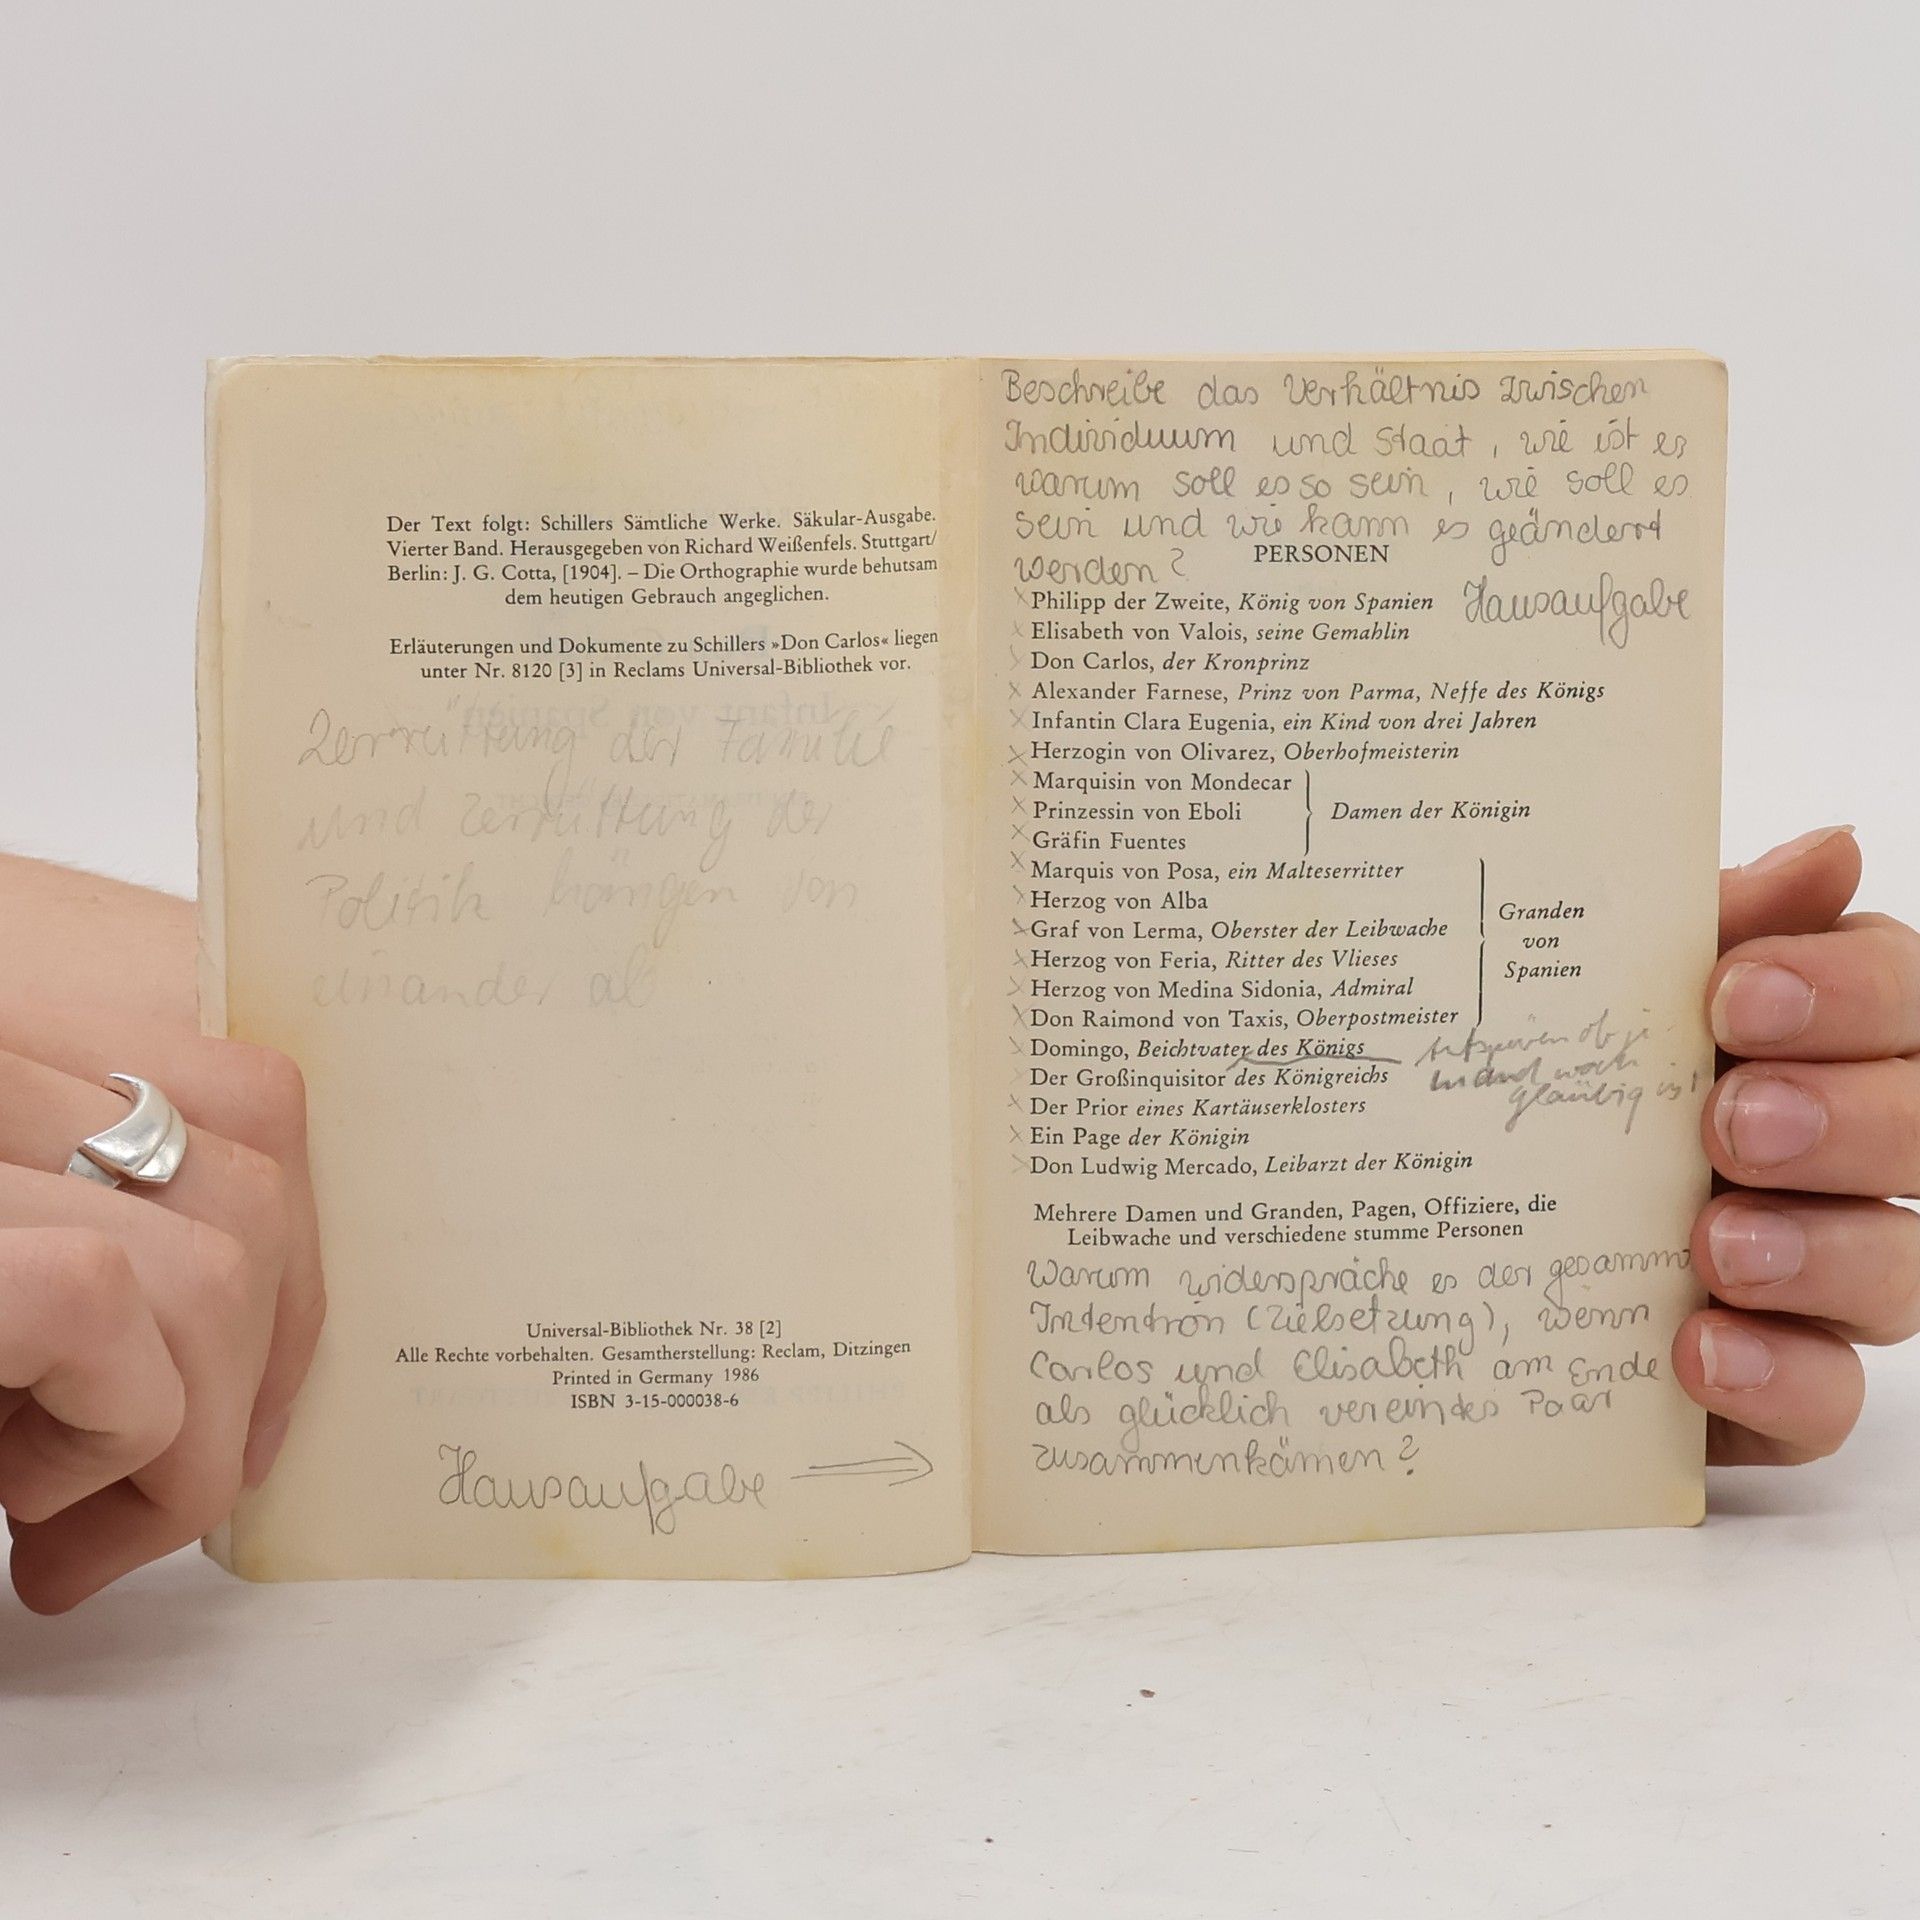 Der Text folgt: Schillers Sämtliche Werke. Säkular-Ausgabe.
Vierter Band. Herausgegeben von Richard Weißenfels. Stuttgart/
Berlin: J. G. Cotta, [1904]. – Die Orthographie wurde behutsam
dem heutigen Gebrauch angeglichen.
Erläuterungen und Dokumente zu Schillers »Don Carlos« liegen
unter Nr. 8120 [3] in Reclams Universal-Bibliothek vor.
Zerrüttung der Familie
und Zerrüttung der
Politik hängen von
einander ab
Universal-Bibliothek Nr. 38 [2]
Alle Rechte vorbehalten. Gesamtherstellung: Reclam, Ditzingen
Printed in Germany 1986
ISBN 3-15-000038-6
Hausaufgabe
Beschreibe das Verhältnis zwischen
Individuum und Staat, wie ist es
warum soll es so sein, wie soll es
sein und wie kann es geändert
werden?
PERSONEN
Philipp der Zweite, König von Spanien
Hausaufgabe
Elisabeth von Valois, seine Gemahlin
Don Carlos, der Kronprinz
Alexander Farnese, Prinz von Parma, Neffe des Königs
Infantin Clara Eugenia, ein Kind von drei Jahren
Herzogin von Olivarez, Oberhofmeisterin
Marquisin von Mondecar
Prinzessin von Eboli
Gräfin Fuentes
Damen der Königin
Marquis von Posa, ein Malteserritter
Herzog von Alba
Graf von Lerma, Oberster der Leibwache
Herzog von Feria, Ritter des Vlieses
Herzog von Medina Sidonia, Admiral
Don Raimond von Taxis, Oberpostmeister
Granden
von
Spanien
Domingo, Beichtvater des Königs
Der Großinquisitor des Königreichs
ob je
mand noch
gläubig ist
Der Prior eines Kartäuserklosters
Ein Page der Königin
Don Ludwig Mercado, Leibarzt der Königin
Mehrere Damen und Granden, Pagen, Offiziere, die
Leibwache und verschiedene stumme Personen
Warum widerspräche es der gesamm
Intention (Zielsetzung), wenn
Carlos und Elisabeth am Ende
als glücklich vereintes Paar
zusammenkämen?